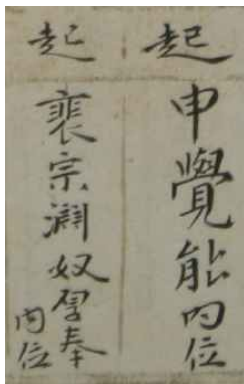 起
申覺能内位
起
裵宗奴奉
内位